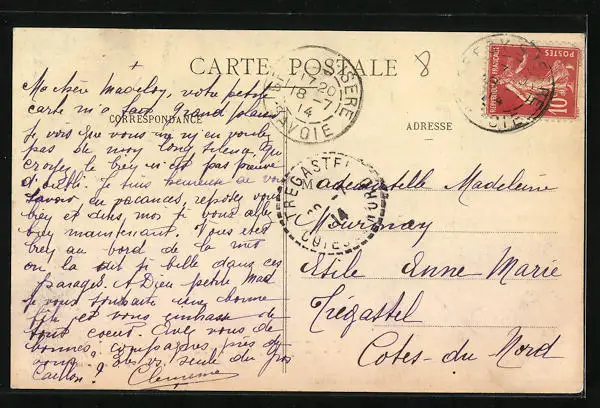 CARTE POSTALE
8
CORRESPONDANCE
ADRESSE
Ma chère Madelon, votre petite
carte m'a fait grand plaisir
Je vois que vous ne m'en voulez
pas de mon long silence. Qui
croyez le bien n'est pas preuve
d'oubli. Je suis heureuse de vous
savoir en vacances, reposez vous
bien et dites moi si vous allez
bien maintenant. Vous êtes
bien au bord de la mer
on la dit si belle dans ces
parages. A Dieu petite Mad
je vous souhaite une bonne
fête et vous embrasse de
tout coeur. Avez vous de
bonnes compagnes près de
vous. Êtes vs seule du
Caillou ?
Mademoiselle Madeleine
Mournay
Etile Anne Marie
Trégastel
Cotes-du Nord
ISERE
17 20
18 -7
14
SAVOIE
TREGASTEL
14
COTES DU NORD
REPUBLIQUE FRANÇAISE
POSTES
10